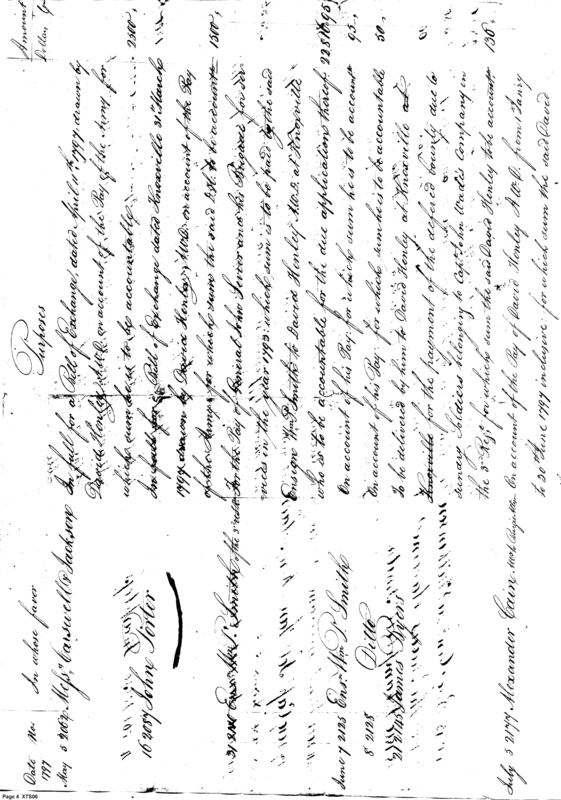 Date No. In whose favor Purpose Amount
1797 Dollars
May 5 2062 Messrs Carswell & Jackson In full for a Bill of Exchange, dated April 11th 1797 drawn by
David Henley A.W.D. on account of the Pay of the Army for
which sum he is to be accountable 2500,
16 2087 John Porter In full for a Bill of Exchange dated Knoxville 31st March
1797 drawn by David Henley A.W.D. on account of the Pay
of the Army for which sum the said D.H. is to be account. 1500,
31 Ensn Wm P. Smith of the 3d For the Pay of General John Sevier and his Brigade for Ser
vices in the year 1793 which sum is to be paid by the said
Ensign Wm P. Smith to David Henley A.W.D. at Knoxville
who is to be accountable for the due application thereof 22816.95
June 7 2125 Ensn Wm P. Smith On account of his Pay for which sum he is to be account 95,
8 2128 Ditto On account of his Pay for which sum he is to be accountable 50,
James Byers To be delivered by him to David Henley at Knoxville
for the payment of the defered bounty due to
sundry Soldiers belonging to Captn John Wade's Company in
the 3d Regt for which sum the said David Henley to be account. 136,
July 5 2174 Alexander Cain On account of the Pay of David Henley A.W.D. from 1 Jany
to 30th June 1797 inclusive for which sum the said David
Page 4 XTS06